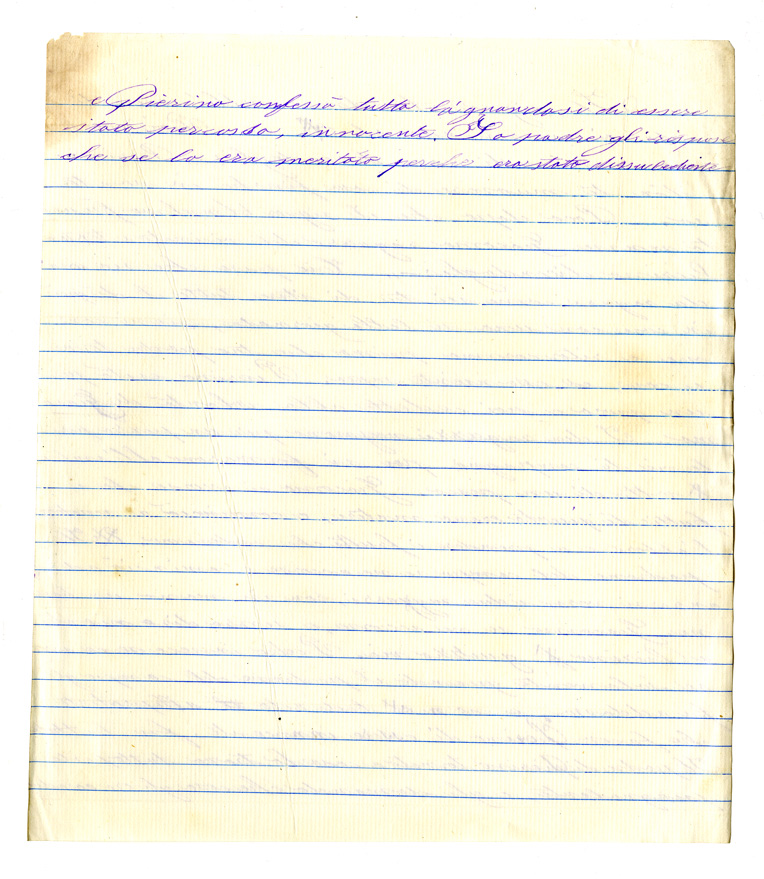 e Pierino confessò tutto lágnandosi di essere
stato percosso, innocente. Io padre gli rispose
che se lo era meritato perchè era stato dissubediente